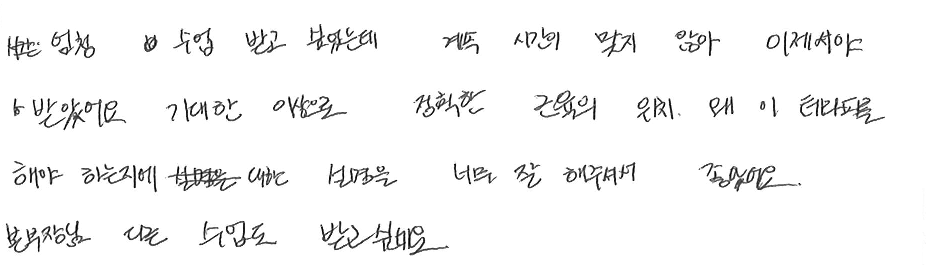 사실 엄청 수업 받고 싶었는데 계속 시간이 맞지 않아 이제서야
받았어요 기대한 이상으로 정확한 근육의 위치. 왜 이 테라피를
해야 하는지에 대한 설명을 너무 잘 해주셔서 좋았어요.
본부장님 다른 수업도 받고 싶네요